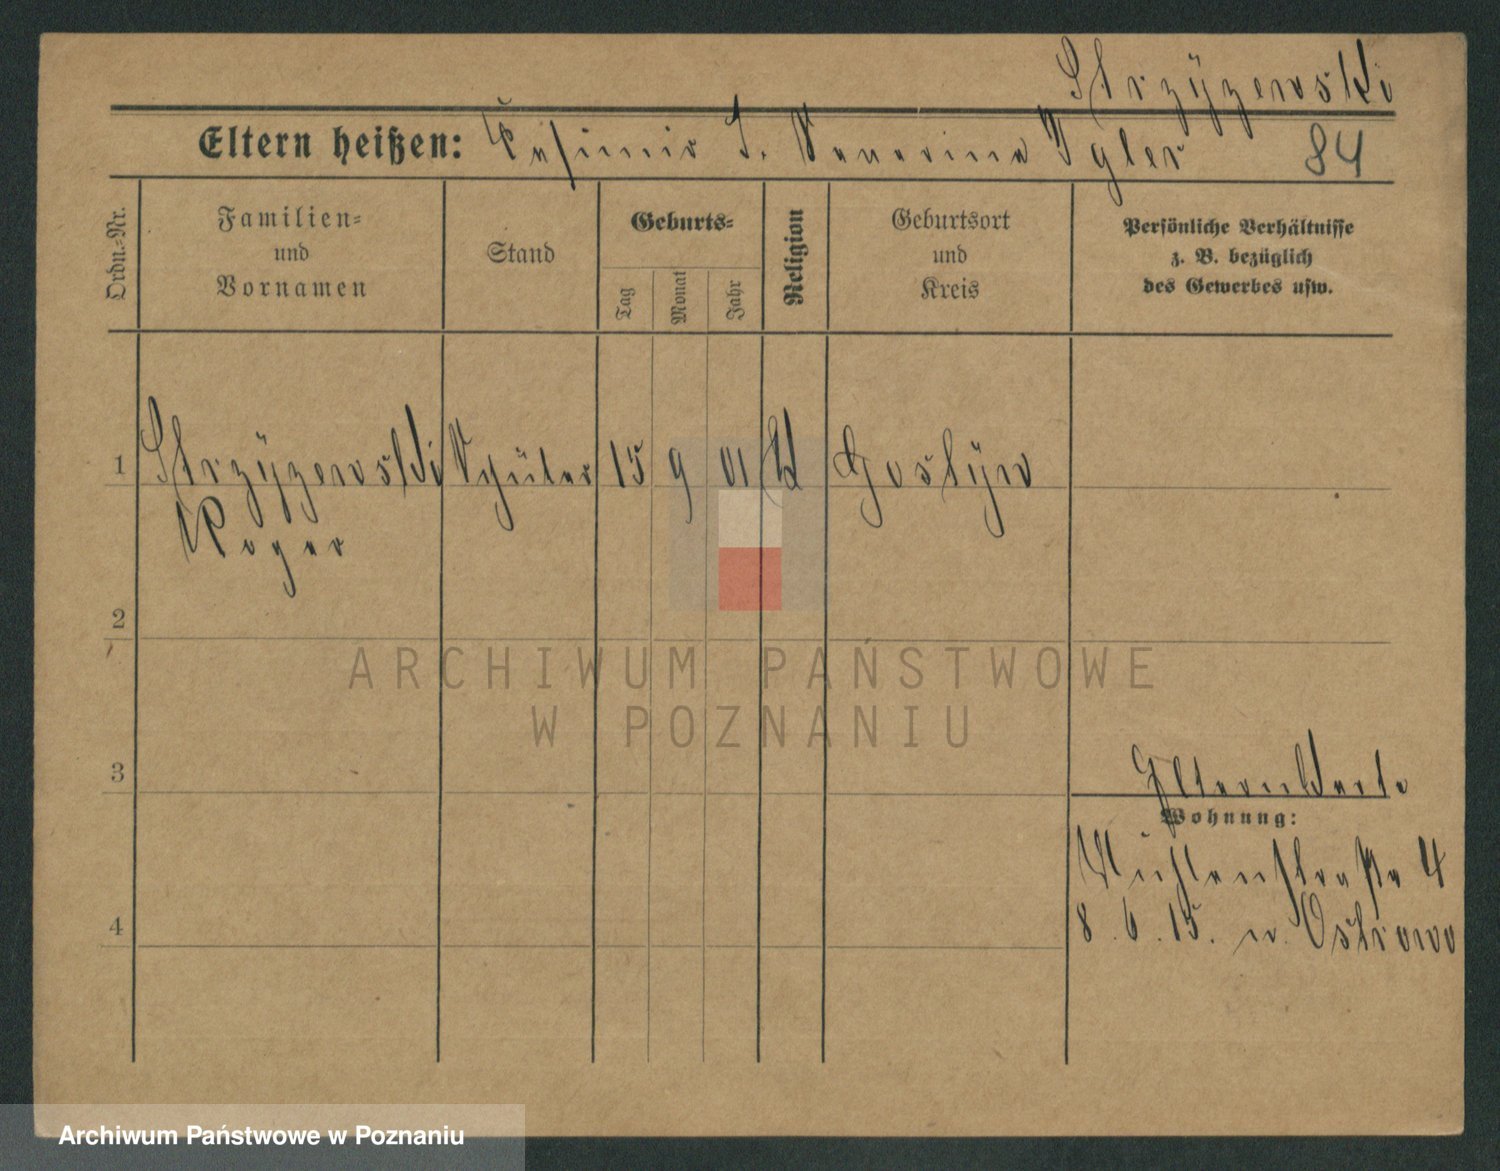 Strzÿzewski
Eltern heißen: Kasimir S. Severina Igler 84
Ordn.=Nr.
Familien=
und
Vornamen
Stand
Geburts=
Tag
Monat
Jahr
Religion
Geburtsort
und
Kreis
Persönliche Verhältnisse
z. B. bezüglich
des Gewerbes usw.
1 Strzÿzewski Schüler 15 9 01 k Gostÿn
Roger
2
3
4
Elternkarte
Wohnung:
Mühlenstraße 4
8. 6. 15. n. Ostrowo
ARCHIWUM PAŃSTWOWE
W POZNANIU
Archiwum Państwowe w Poznaniu